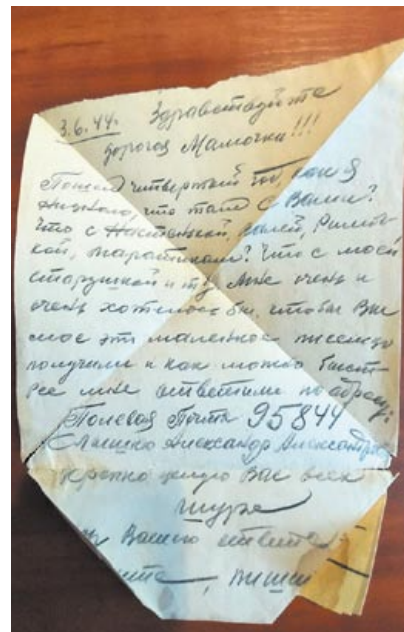 3.6.44. Здравствуйте
дорогая Мамочка!!!
Пошел четвертый год, как я
что там с Вами?
Что с Настенькой,
кой, Маратиком? Что с моей
старушкой и т.д. Мне очень и
очень хотелось бы, чтобы Вы
мое это маленькое письмецо
получили и как можно быст-
рее мне ответили по адресу:
Полевая Почта 95844
Александр Александров
крепко целую Вас всех
Шура
Вашего ответа